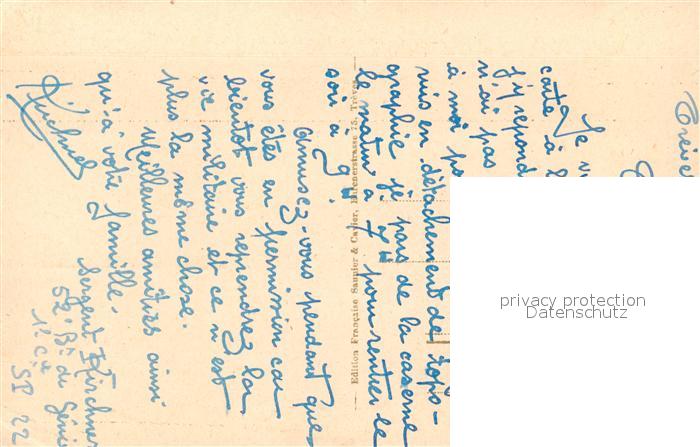 Trèves
Je v
carte à l
j'y répond
n'ai pas
à moi
mis en détachement de topo-
graphie je pars de la caserne
le matin à 7h pour rentrer le
soir à 9h.
Amusez-vous pendant que
vous êtes en permission car
bientôt vous reprendrez la
vie militaire et ce n'est
plus la même chose.
Meilleures amitiés ainsi
qu'à votre famille.
Kirchner
Sergent Kirchner
52e Bn du Génie
1e Cie
SP 22
Edition Française Saunier & Cavier, Eurenerstrasse 75, Trèves
privacy protection
Datenschutz